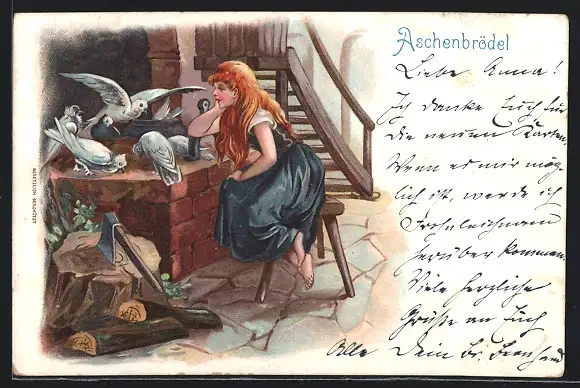 Aschenbrödel
Liebe Anna!
Ich danke Euch für
die neuen Karten.
Wenn es mir mög-
lich ist, werde ich
Frohnleichnam
herüber kommen.
Viele herzliche
Grüße an Euch
Alle Dein Br. Bernhard
GESETZLICH GESCHÜTZT